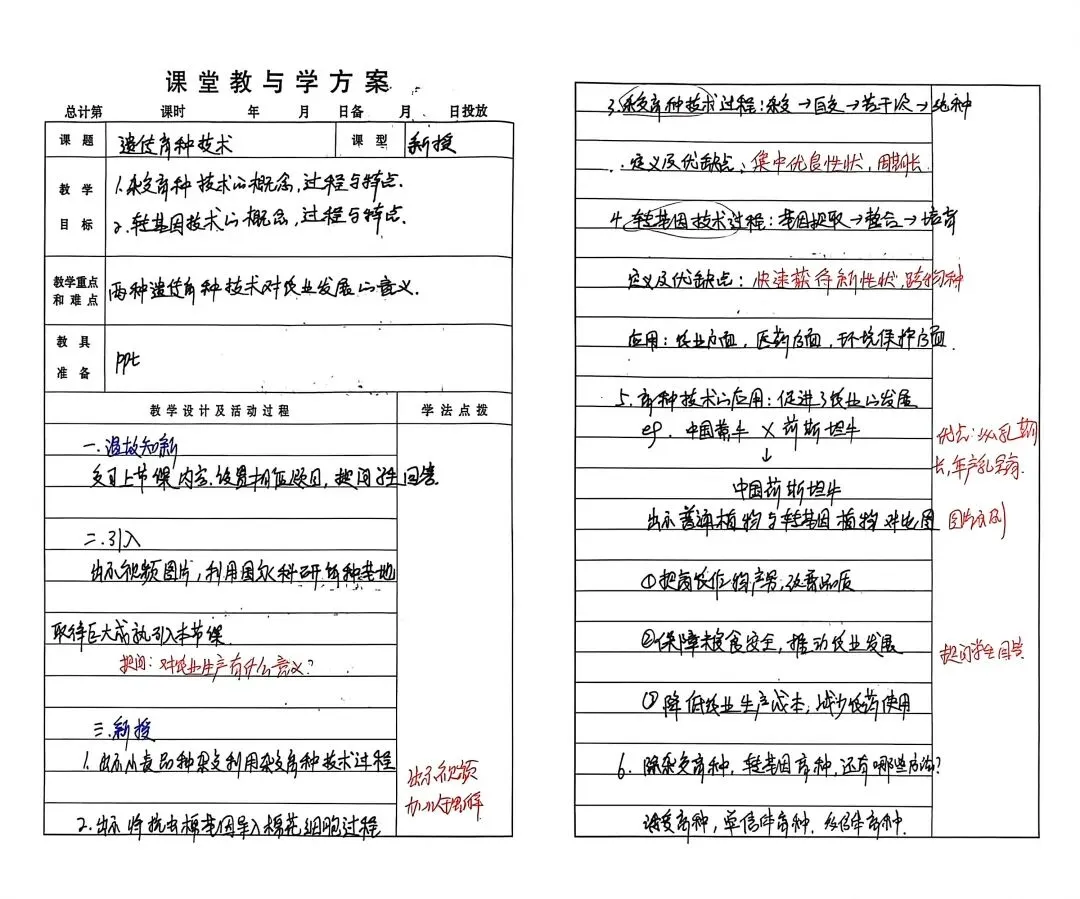 课堂教与学方案
总计第 课时 年 月 日备 月 日投放
课题 遗传育种技术 课型 新授
教学目标 1.杂交育种技术的概念,过程与特点.
2.转基因技术的概念,过程与特点.
教学重点和难点 两种遗传育种技术对农业发展的意义.
教具准备 ppt
教学设计及活动过程 学法点拨
一.温故知新
复习上节课内容.设置相应题目,提问学生回答.
二.引入
出示视频图片,利用国家科研育种基地
取得巨大成就引入本节课.
提问:对农业生产有什么意义?
三.新授
1.出示小麦品种杂交利用杂交育种技术过程
出示视频
加以理解
2.出示将抗虫棉基因导入棉花细胞过程
3.杂交育种技术过程:杂交→自交→若干次→纯种
定义及优缺点:集中优良性状,周期长.
4.转基因技术过程:基因提取→整合→培育
定义及优缺点:快速获得新性状,跨物种
应用:农业方面,医药方面,环境保护方面.
5.育种技术的应用:促进了农业的发展
eg.中国黄牛×荷斯坦牛
↓
中国荷斯坦牛
优点:泌乳期
长,年产乳量高.
出示普通植物与转基因植物对比图
图片识别
①提高农作物产量,改善品质
②保障粮食安全,推动农业发展
提问学生回答
③降低农业生产成本,减少农药使用
6.除杂交育种,转基因育种,还有哪些方法?
诱变育种,单倍体育种.多倍体育种.